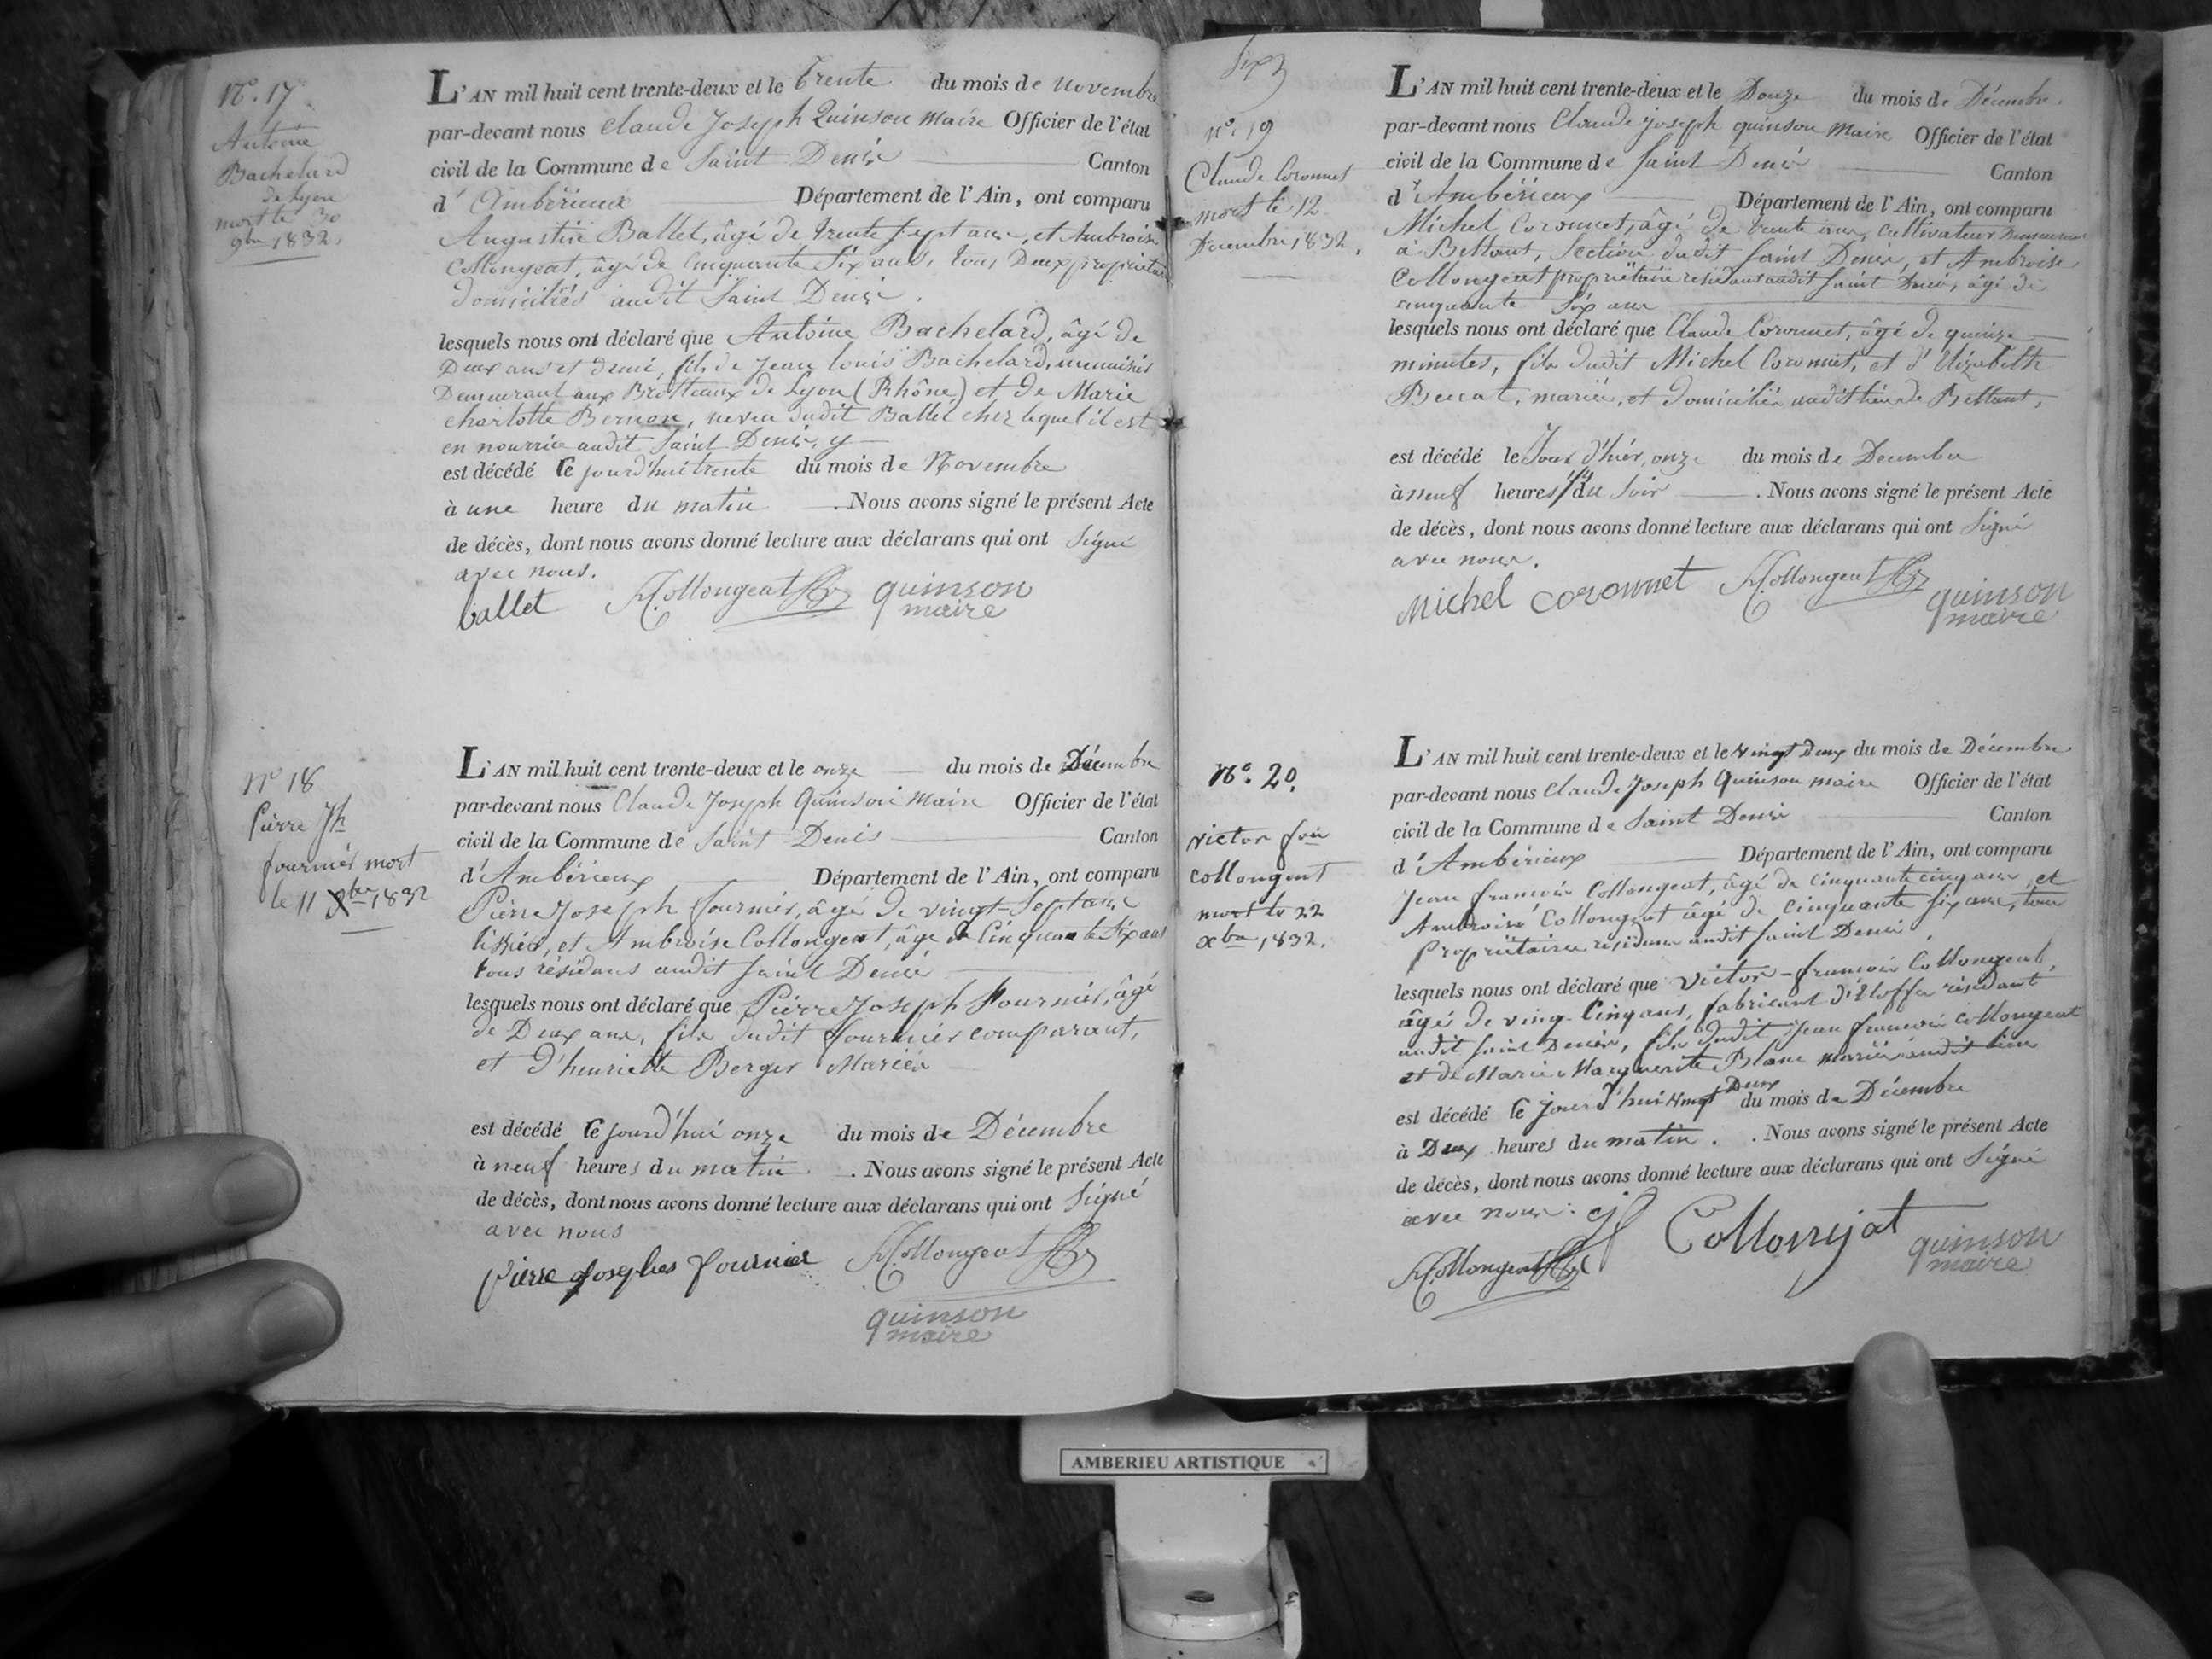 N.o 17
Antoine
Bachelard
de Lyon
mort le 30
9bre 1832.
L'AN mil huit cent trente-deux et le trente du mois de novembre
par-devant nous Claude Joseph Quinson Maire Officier de l'état
civil de la Commune de Saint Denis Canton
d'Ambérieux Département de l'Ain, ont comparu
Augustin Ballet, âgé de trente sept ans, et Ambroise
Collongeat, âgé de cinquante six ans, tous Deux propriétaires
domiciliés audit Saint Denis.
lesquels nous ont déclaré que Antoine Bachelard, âgé de
Deux ans et demi, fils de Jean Louis Bachelard, menuisier
Demeurant aux Brotteaux de Lyon (Rhône) et de Marie
Charlotte Bernon, neveu dudit Ballet chez lequel il est
en nourrice audit Saint Denis, y
est décédé le jourd'hui trente du mois de Novembre
à une heure du matin . Nous avons signé le présent Acte
de décès, dont nous avons donné lecture aux déclarans qui ont Signé
avec nous.
ballet A. Collongeat quinson
maire
n.o 18
Pierre Jh
fournier mort
le 11 Xbre 1832
L'AN mil huit cent trente-deux et le onze du mois de Décembre
par-devant nous Claude Joseph Quinson Maire Officier de l'état
civil de la Commune de Saint Denis Canton
d'Ambérieux Département de l'Ain, ont comparu
Pierre Joseph fournier, âgé de vingt Sept ans
et Ambroise Collongeat, âgé de Cinquante Six ans
tous résidans audit Saint Denis
lesquels nous ont déclaré que Pierre Joseph Fournier, âgé
de Deux ans, fils dudit fournier comparant,
et d'henriette Berger Mariés
est décédé le jourd'hui onze du mois de Décembre
à neuf heures du matin . Nous avons signé le présent Acte
de décès, dont nous avons donné lecture aux déclarans qui ont Signé
avec nous
pierre josephes fournier A. Collongeat
quinson
maire
n.o 19
Claude Coronnet
mort le 12
Decembre 1832.
L'AN mil huit cent trente-deux et le Douze du mois de Décembre
par-devant nous Claude Joseph quinson Maire Officier de l'état
civil de la Commune de Saint Denis Canton
d'Ambérieux Département de l'Ain, ont comparu
Michel Coronnet, âgé de trente ans, Cultivateur
à Bettant, Section dudit Saint Denis, et Ambroise
Collongeat propriétaire résidans audit Saint Denis, âgé de
cinquante Six ans
lesquels nous ont déclaré que Claude Coronnet, âgé de quinze
minutes, fils dudit Michel Coronnet, et d'Elizabeth
mariés, et domiciliés audit lieu de Bettant,
est décédé le Jour d'hier, onze du mois de Decembre
à neuf heures du Soir . Nous avons signé le présent Acte
de décès, dont nous avons donné lecture aux déclarans qui ont Signé
avec nous.
Michel Coronnet A. Collongeat quinson
maire
N.o 20.
victor fois
collongeat
mort le 22
xbre 1832.
L'AN mil huit cent trente-deux et le vingt Deux du mois de Décembre
par-devant nous Claude Joseph Quinson maire Officier de l'état
civil de la Commune de Saint Denis Canton
d'Ambérieux Département de l'Ain, ont comparu
Jean françois Collongeat, âgé de cinquante cinq ans, et
Ambroise Collongeat âgé de cinquante six ans, tous
Propriétaires résidans audit Saint Denis
lesquels nous ont déclaré que victor-françois Collongeat,
âgé de vingt Cinq ans, fabricant d'étoffes résidant
audit Saint Denis, fils dudit Jean françois Collongeat
et de Marie Marguerite Blanc mariés audit lieu
est décédé le jourd'hui vingt Deux du mois de Décembre
à Deux heures du matin. . Nous avons signé le présent Acte
de décès, dont nous avons donné lecture aux déclarans qui ont Signé
avec nous.
A. Collongeat Jf Collonjat quinson
maire
AMBERIEU ARTISTIQUE